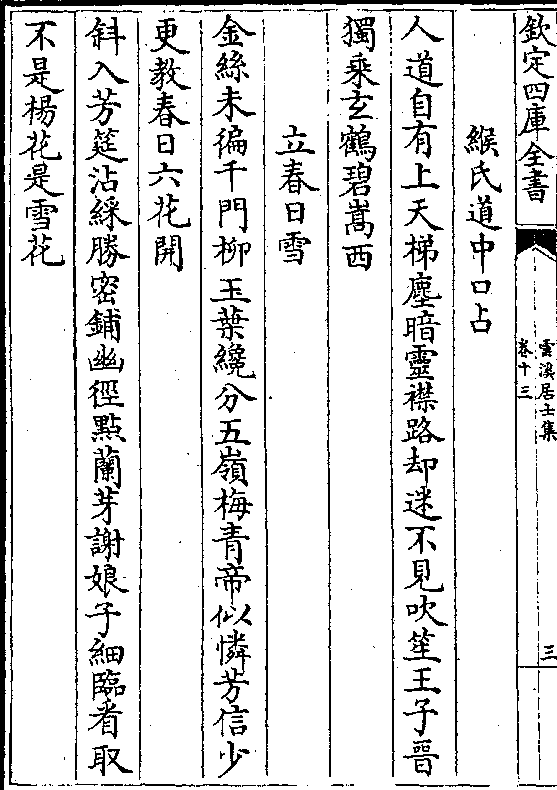 欽定四庫全書
雲溪居士集
卷十三
三
緱氏道中口占
人道自有上天梯塵暗靈襟路却迷不見吹笙王子晉
獨乘玄鶴碧嵩西
立春日雪
金絲未徧千門柳玉葉纔分五嶺梅青帝似憐芳信少
更教春日六花開
斜入芳筵沾綵勝密鋪幽徑點蘭芽謝娘子細臨看取
不是楊花是雪花